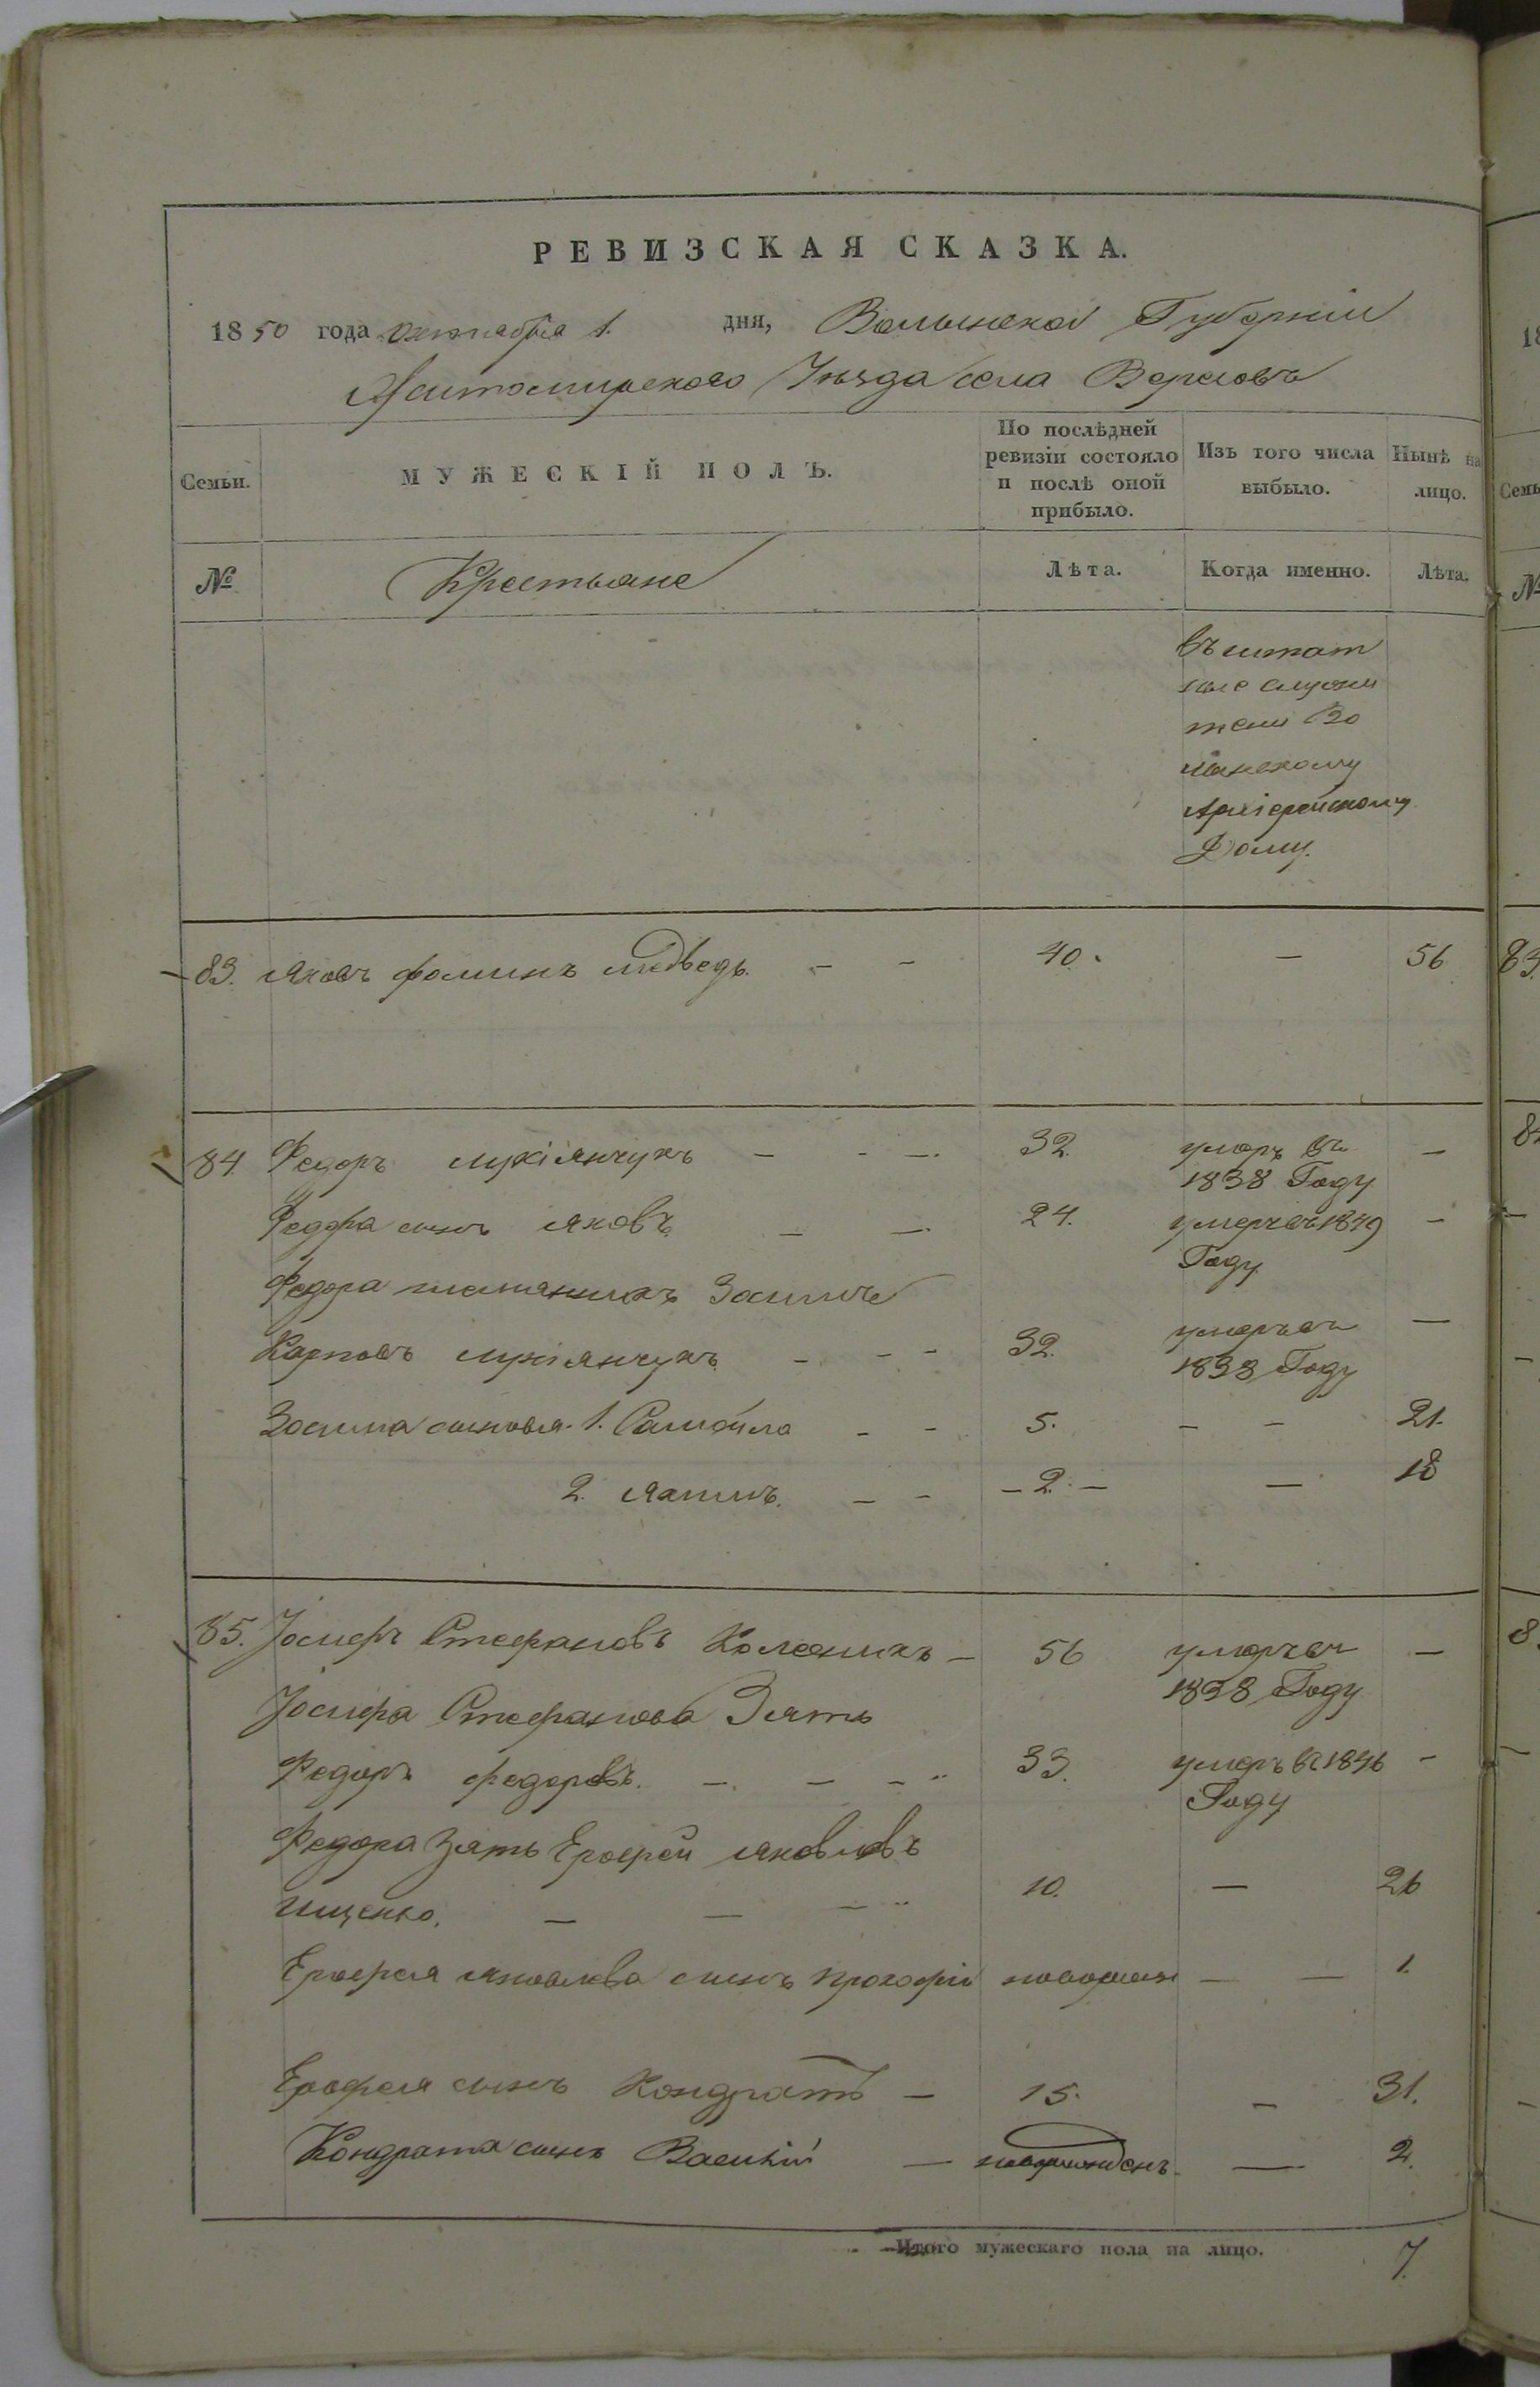 РЕВИЗСКАЯ СКАЗКА.
1850 года октября 1. дня, Волынской Губернiи
Житомирского Уѣзда села Вересовъ
Семьи. МУЖЕСКІЙ ПОЛЪ. По послѣдней ревизіи состояло и послѣ оной прибыло. Изъ того числа выбыло. Нынѣ на лицо.
№ Крестьяне Лѣта. Когда именно. Лѣта.
въ штат
ные служи
тели Во
лынскому
Архіерейскому
Дому.
83. Яковъ Фоминъ медведь. — — 40. — 56
84. Федоръ Лукіянчукъ — — — 32. умеръ въ —
1838 Году
Федора сынъ Яковъ — — 24. умеръ въ 1849 —
Году
Федора племянникъ Зосимъ
Карповъ Лукіянчукъ — — — 32. умеръ въ —
1838 Году
Зосима сыновья 1. Самойло — — 5. — — 21.
2. Якимъ. — — — 2. — — 18
85. Іосифъ Стефановъ Колесникъ — 56 умеръ въ —
1838 Году
Іосифа Стефанова Зять
Федоръ Федоровъ. — — — 33. умеръ въ 1846 —
Году
Федора Зять Ерофей Яковлевъ
Ищенко. — — — 10. — 26
Ерофея Яковлева сынъ Прокофій новорожден — — 1.
Ерофея сынъ Кондратъ — 15. — 31.
Кондрата сынъ Василій — новорожденъ — 2.
Итого мужескаго пола на лицо. 7.